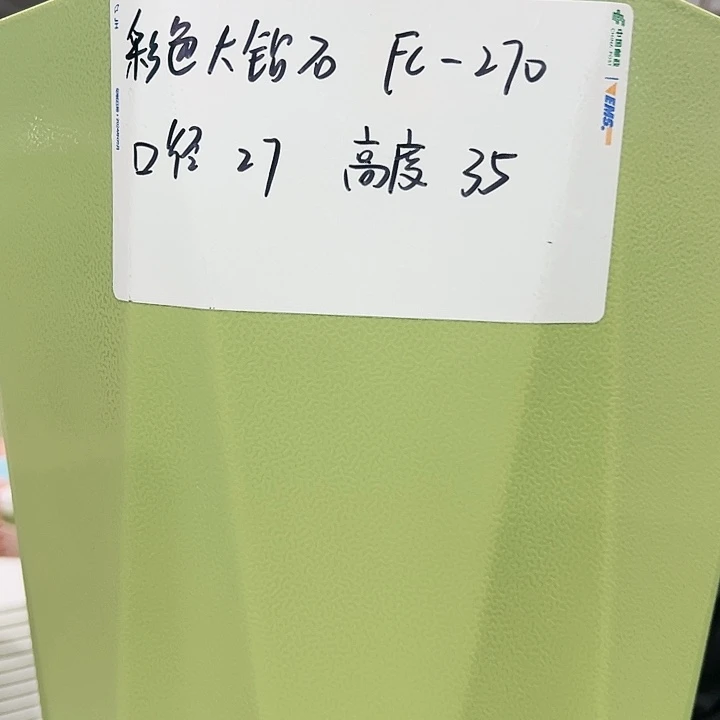 彩色大钻石 FC-270
口径 27 高度 35
中国邮政
CHINA POST
EMS